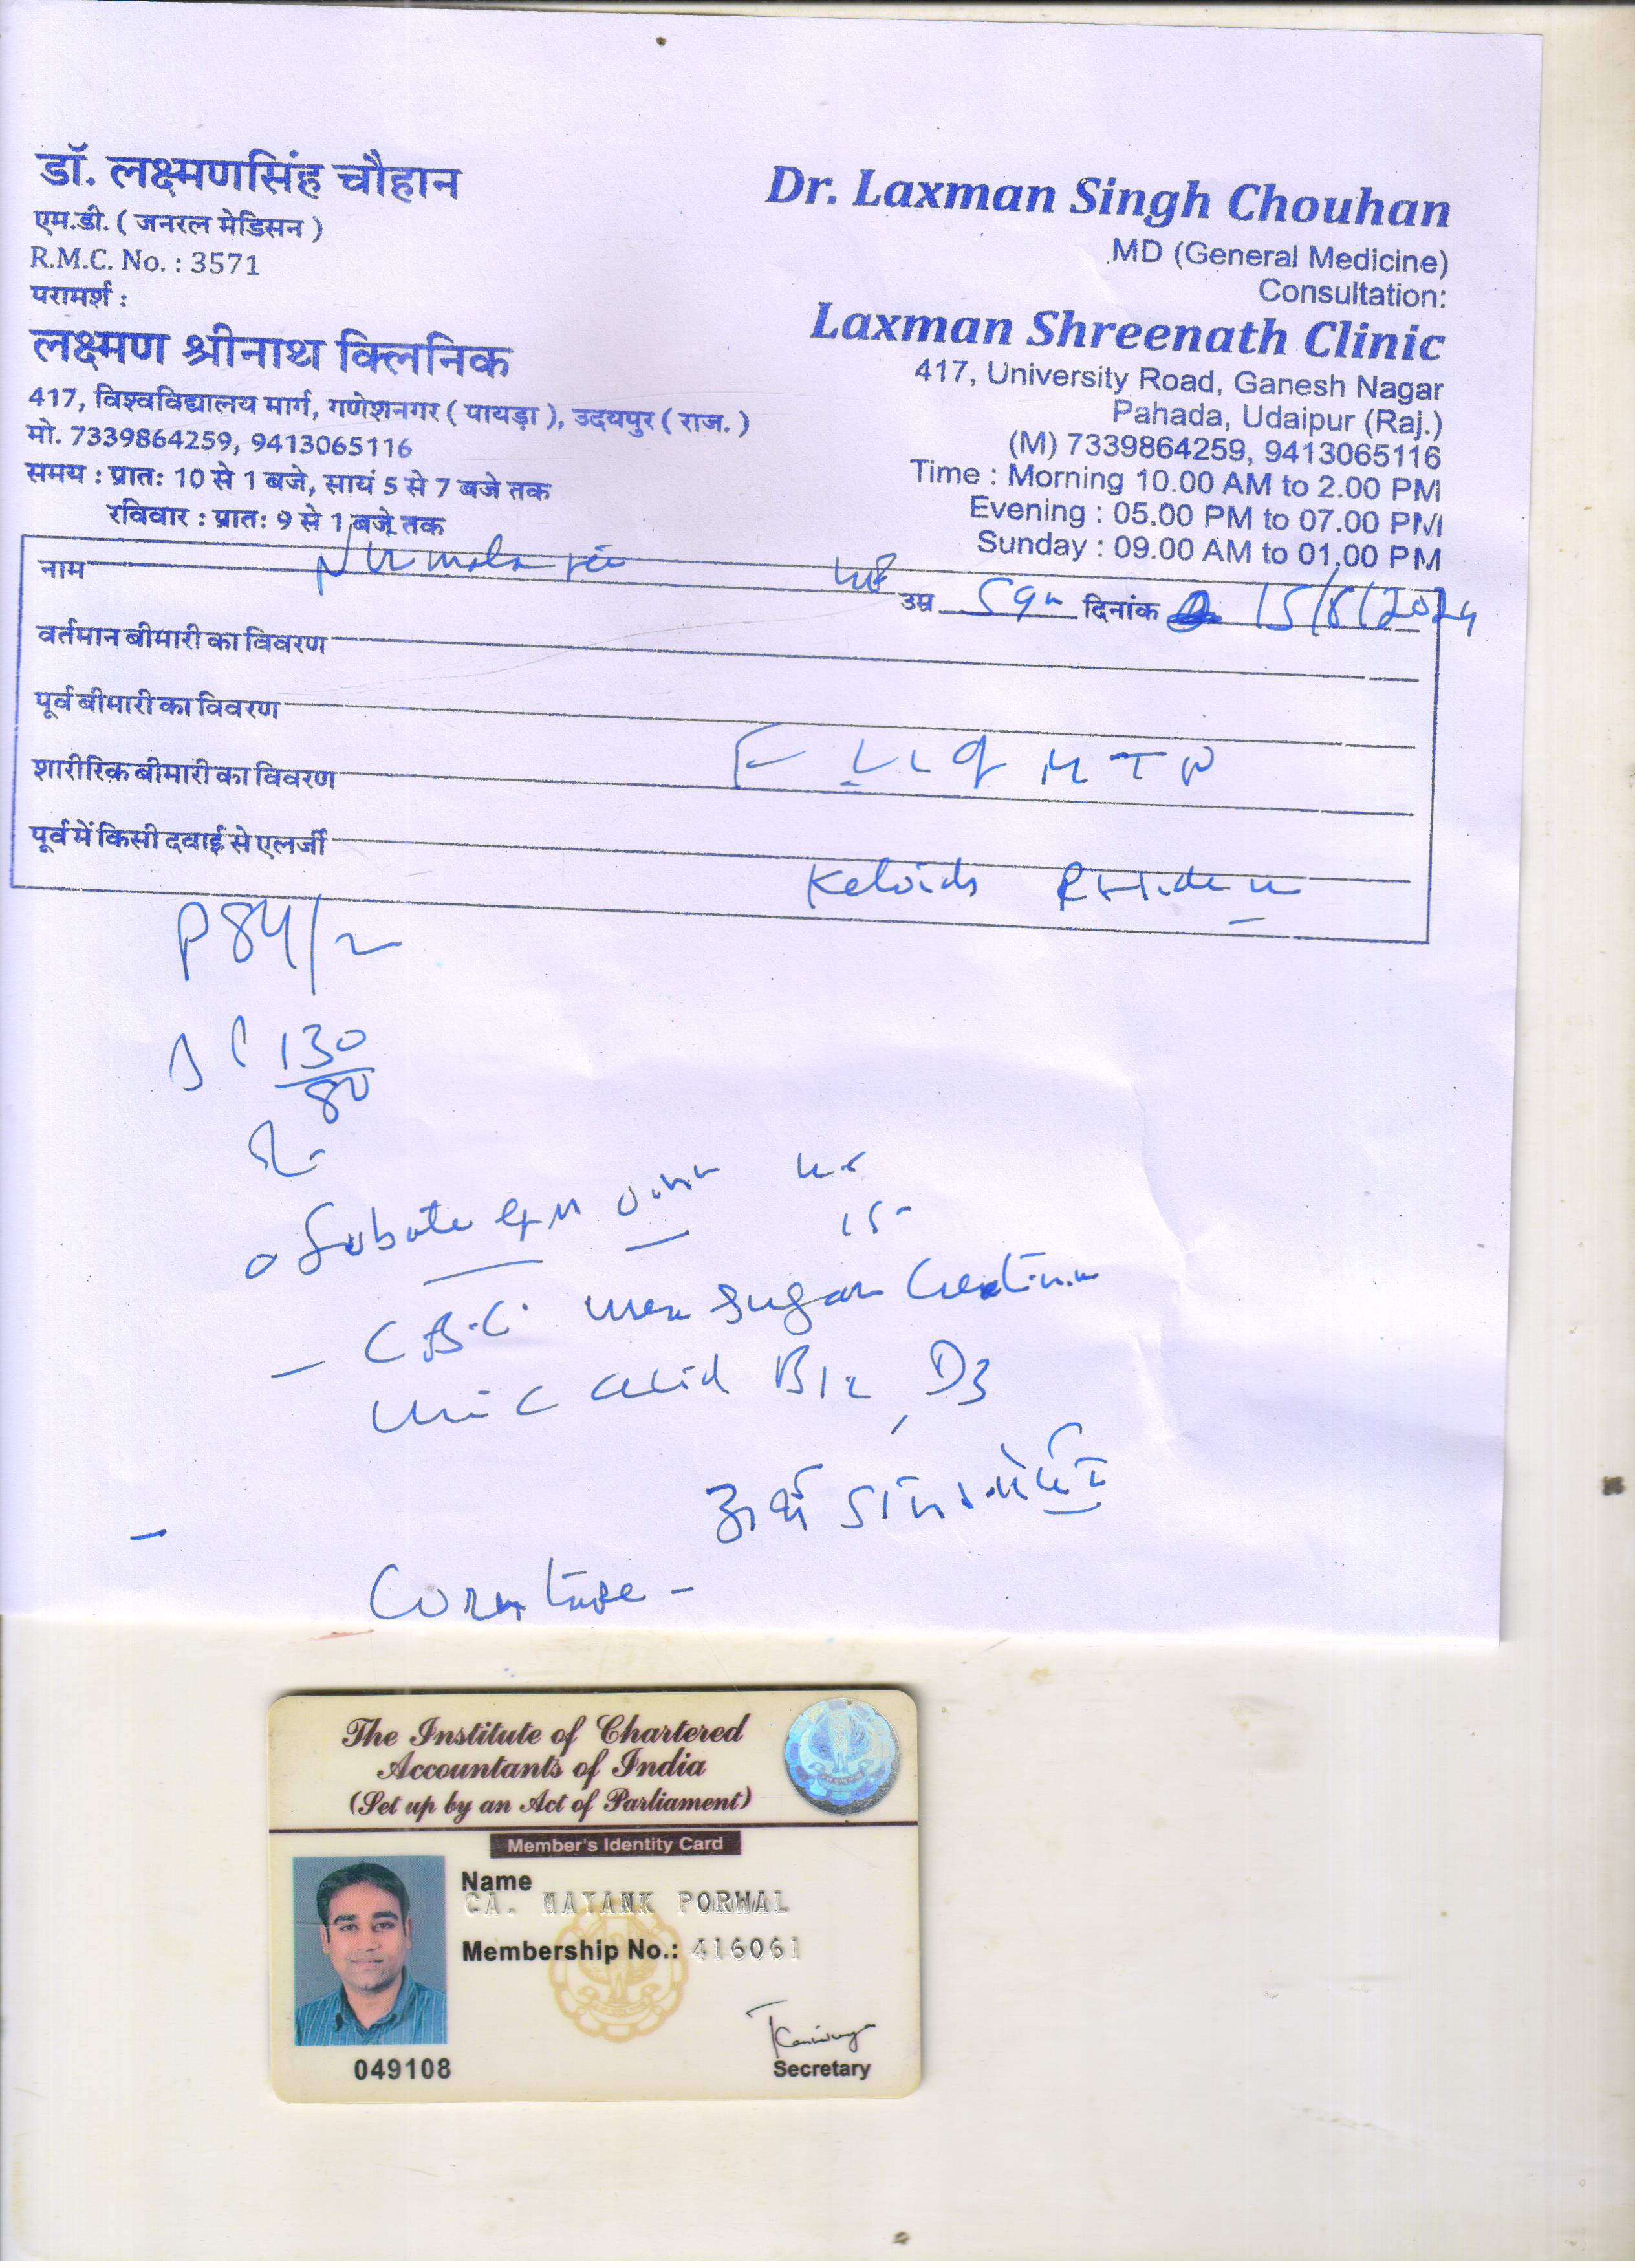 डॉ. लक्ष्मणसिंह चौहान
एम.डी. ( जनरल मेडिसन )
R.M.C. No. : 3571
परामर्श :
लक्ष्मण श्रीनाथ क्लिनिक
417, विश्वविद्यालय मार्ग, गणेशनगर ( पायड़ा ), उदयपुर ( राज. )
मो. 7339864259, 9413065116
समय : प्रातः 10 से 1 बजे, सायं 5 से 7 बजे तक
रविवार : प्रातः 9 से 1 बजे तक
Dr. Laxman Singh Chouhan
MD (General Medicine)
Consultation:
Laxman Shreenath Clinic
417, University Road, Ganesh Nagar
Pahada, Udaipur (Raj.)
(M) 7339864259, 9413065116
Time : Morning 10.00 AM to 2.00 PM
Evening : 05.00 PM to 07.00 PM
Sunday : 09.00 AM to 01.00 PM
नाम उम्र दिनांक 15/8/2024
वर्तमान बीमारी का विवरण
पूर्व बीमारी का विवरण
शारीरिक बीमारी का विवरण
पूर्व में किसी दवाई से एलर्जी
Keloids
P 84/
130
80
C.B.C. Sugar
Uric Acid B12, D3
The Institute of Chartered
Accountants of India
(Set up by an Act of Parliament)
Member's Identity Card
Name
CA. MAYANK PORWAL
Membership No.: 416061
049108
Secretary